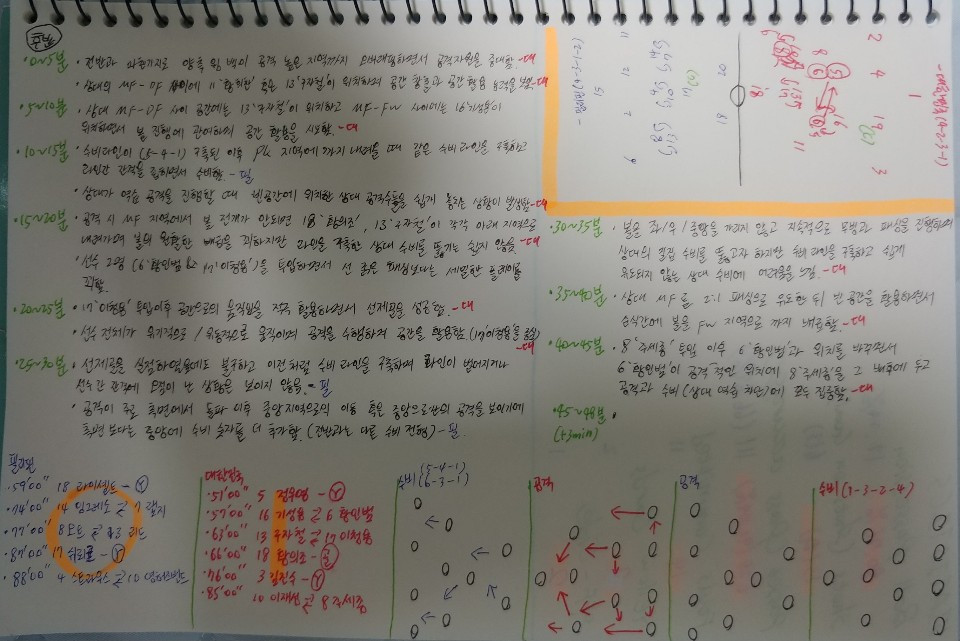 후반
·0~5분 · 전반과 마찬가지로 양쪽 윙백이 공격 높은 지역까지 오버래핑하면서 공격자원을 증대함. -대
· 상대의 MF-DF 사이에 11 '황희찬' 혹은 13 '구자철'이 위치하여 공간 창출과 공간 활용 공격을 보임. -대
·5~10분 · 상대 MF-DF 사이 공간에는 13 '구자철'이 위치하고 MF-FW 사이에는 16 '기성용'이
위치하면서 볼 진행에 관여하며 공간 활용을 시도함. -대
·10~15분 · 수비라인이 (5-4-1) 구축된 이후 PK 지역에까지 내려올 때 같은 수비라인을 구축하고
라인간 간격을 좁히면서 수비함 - 필
· 상대가 역습 공격을 진행할 때 빈공간에 위치한 상대 공격수들을 쉽게 놓치는 상황이 발생함 -대
·15~20분 · 공격 시 MF 지역에서 볼 전개가 안되면 18 '황의조', 13 '구자철'이 각각 아래 지역으로
내려가며 볼의 원활한 배급을 꾀하지만 라인을 구축한 상대 수비를 뚫기는 쉽지 않음 -대
· 선수 2명 (6 '황인범' & 17 '이청용')을 투입하면서 선 굵은 패싱보다는 세밀한 플레이를
꾀함.
·20~25분 · 17 '이청용' 투입이후 공간으로의 움직임을 자주 활용하면서 선제골을 성공함 -대
· 선수 전체가 유기적으로 / 유동적으로 움직이며 공격을 수행하며 공간을 활용함 (17 '이청용'을 중심)
-대
·25~30분 · 선제골을 실점하였음에도 불구하고 이전처럼 수비 라인을 구축하며 라인이 벌어지거나
선수간 간격에 문제가 난 상황을 보이지 않음 - 필
· 공격이 주로 측면에서 돌파 이후 중앙지역으로의 이동 혹은 중앙으로만의 공격을 보이기에
측면 보다는 중앙에 수비 숫자를 더 추가함. (전반과는 다른 수비 전형) - 필.
-대한민국 (4-2-3-1)
1
2 4 19 (C) 3
16
8 11
18
20 18
-필리핀 (5-4-1)
11 12 5 7 9
·30~35분 · 볼을 좌/우/중앙을 가리지 않고 지속적으로 돌파와 패싱을 진행하며
상대의 밀집 수비를 뚫고자 하지만 수비 라인을 구축하고 쉽게
유도되지 않는 상대 수비에 어려움을 겪음. -대
·35~40분 · 상대 MF를 2:1 패싱으로 유도한 뒤 빈 공간을 활용하면서
순식간에 볼을 FW 지역으로 까지 배급함. -대
·40~45분 · 8 '주세종' 투입 이후 6 '황인범'과 위치를 바꾸면서
6 '황인범'이 공격적인 위치에 8 '주세종'을 그 배후에 두고
공격과 수비 (상대 역습 차단)에 모두 집중함. -대
·45~48분 ·
(+3min)
필리핀
·59'00" 18 라이셸트 - Ⓨ
·74'00" 14 잉그레소 ⇄ 7 램지
·77'00" 8 오트 ⇄ 리드
·87'00" 17 쉬뢰크 - Ⓨ
·88'00" 4 스트라우스 ⇄ 10 영허즈번드
대한민국
·51'00" 5 정우영 - Ⓨ
·57'00" 16 기성용 ⇄ 6 황인범
·63'00" 13 구자철 ⇄ 17 이청용
·66'00" 18 황의조 - 골
·76'00" 3 김진수 - Ⓨ
·85'00" 10 이재성 ⇄ 8 주세종
수비 (5-4-1)
(6-3-1)
공격
공격
수비 (1-3-2-4)